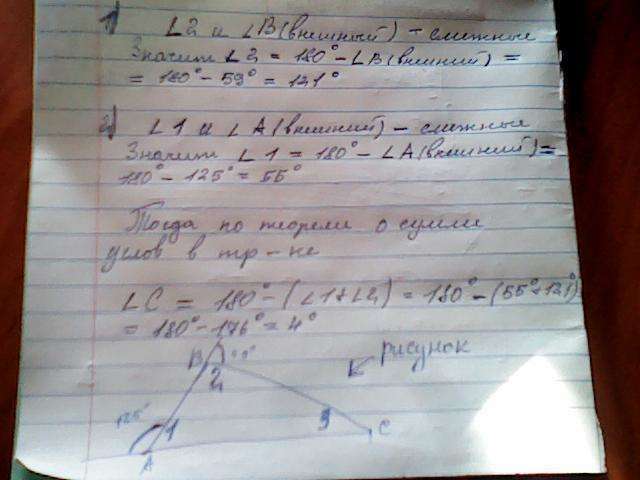 1)
∠2 и ∠B(внешний) - смежные
Значит ∠2 = 180° - ∠B(внешний) =
= 180° - 59° = 121°
2)
∠1 и ∠A(внешний) - смежные
Значит ∠1 = 180° - ∠A(внешний) =
180° - 125° = 55°
Тогда по теореме о сумме
углов в тр-ке
∠C = 180° - (∠1+∠2) = 180° - (55°+121°)
= 180° - 176° = 4°
рисунок
B
2
125°
1
3
C
A